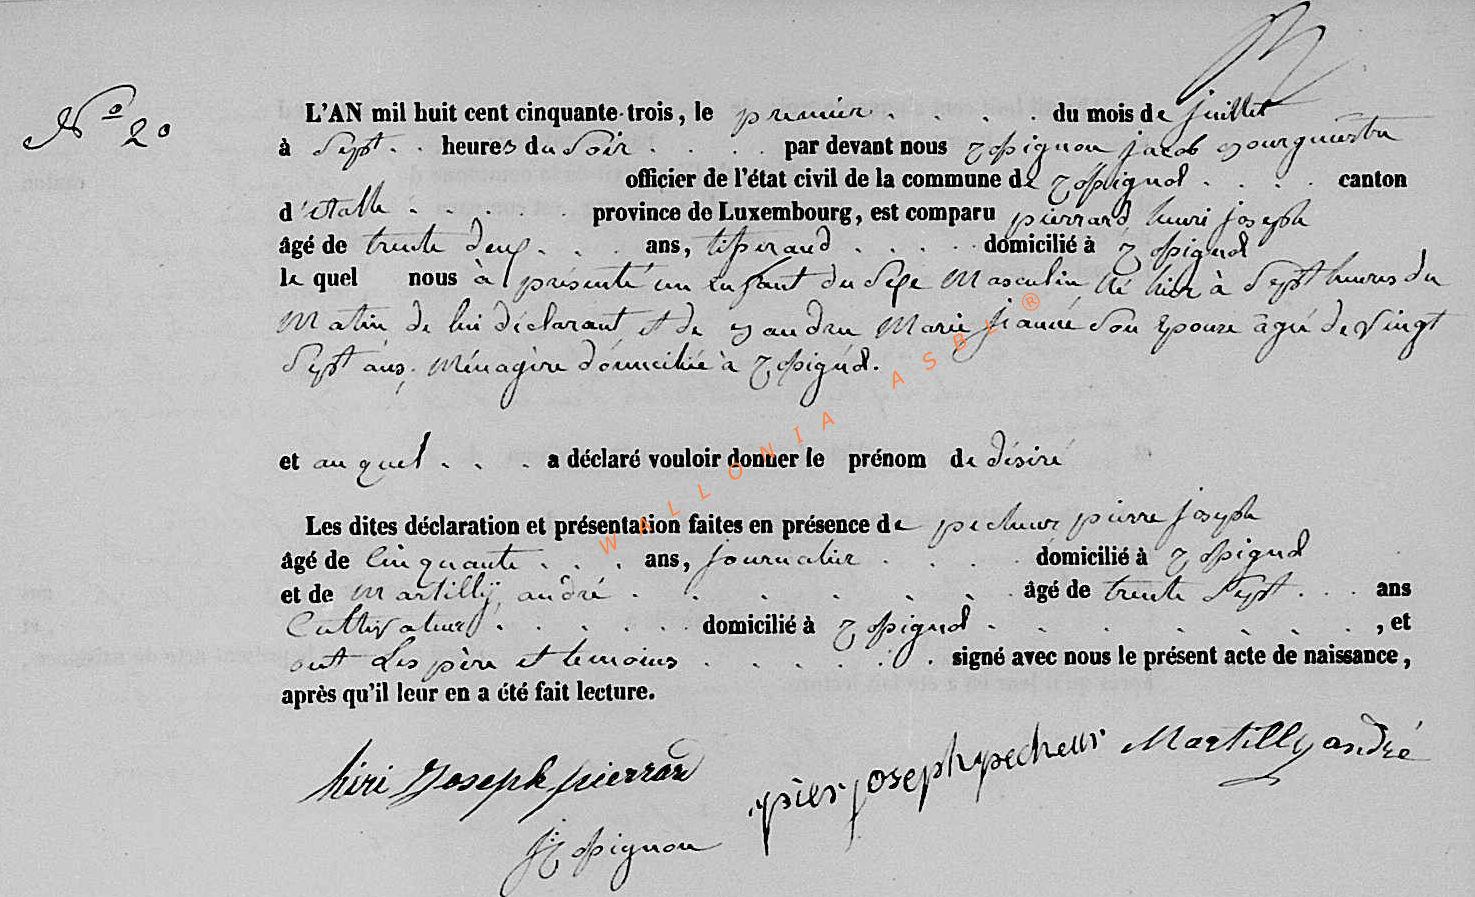 N° 20
L'AN mil huit cent cinquante-trois, le premier . . . . du mois de juillet
à Sept . . heures du Soir . . . . par devant nous jacob Bourgumestre
officier de l'état civil de la commune de . . . . canton
d'étalle . . . . . . province de Luxembourg, est comparu pierrard henri joseph
âgé de trente deux . . . ans, tisserand . . . . domicilié à
le quel nous à présenté un enfant du Sexe Masculin, Né hier à Sept heures du
Matin de lui déclarant et de Marie jeanne Son Epouse âgée de Vingt
Sept ans, Ménagère domiciliée à
et au quel . . . a déclaré vouloir donner le prénom de désiré
Les dites déclaration et présentation faites en présence de pecheur pierre joseph
âgé de Cinquante . . . ans, journalier . . . . domicilié à
et de Martilly, andré . . . . . . . âgé de trente Sept . . . ans
Cultivateur . . . . . domicilié à . . . . . . . , et
ont Les père et temoins . . . . . . signé avec nous le présent acte de naissance,
après qu'il leur en a été fait lecture.
hiri Joseph pierrard
pier joseph pecheur
Martilly andré
WALLONIA ASBL ®